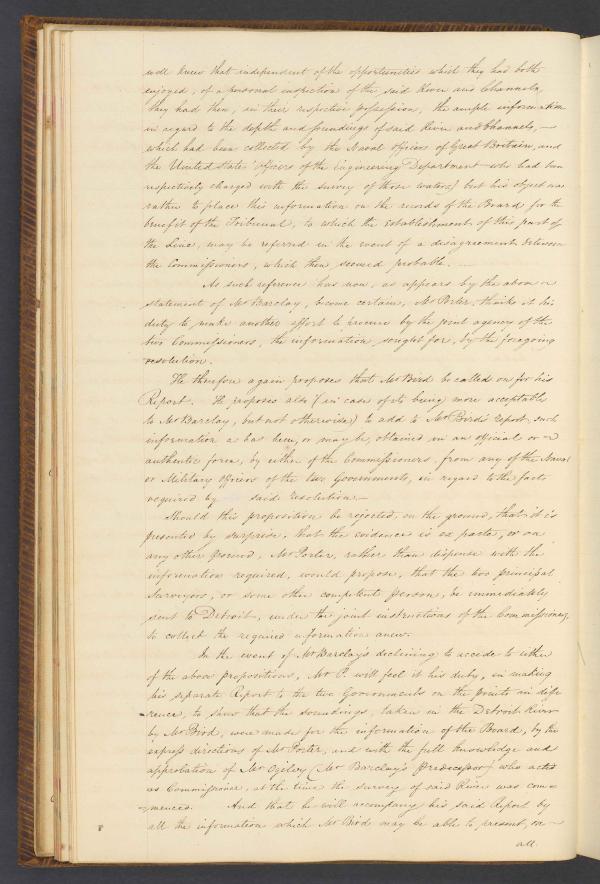 well knew that independent of the opportunities which they had both
enjoyed, of a personal inspection of the said River and Channels,
they had then, in their respective possession, the ample information
in regard to the depth and soundings of said River and Channels, —
which had been collected by the Naval officers of Great Britain, and
the United States officers of the Engineering Department who had been
respectively charged with the survey of those waters) but his object was
rather to place this information on the records of the Board for the
benefit of the Tribunal, to which the establishment of this part of
the Line, may be referred in the event of a disagreement between
the Commissioners, which then seemed probable. —
As such reference has now, as appears by the above
statement of Mr Barclay, become certain, Mr Porter, thinks it his
duty to make another effort to procure by the joint agency of the
two Commissioners, the information sought for, by the foregoing
resolution.
He therefore again proposes that Mr Bird be called on for his
Report. He proposes also (in case of its being more acceptable
to Mr Barclay, but not otherwise) to add to Mr Bird's report such
information as has been, or may be, obtained in an official or
authentic form, by either of the Commissioners, from any of the Naval
or Military officers of the two Governments, in regard to the facts
required by said resolution. —
Should this proposition be rejected, on the ground, that it is
presented by surprise, that the evidence is ex parte, or on
any other ground, Mr Porter, rather than dispense with the
information required, would propose, that the two principal
Surveyors, or some other competent person, be immediately
sent to Detroit, under the joint instructions of the Commissioners,
to collect the required information anew.
In the event of Mr Barclay's declining to accede to either
of the above propositions, Mr P. will feel it his duty, in making
his separate Report to the two Governments on the points in diffe
-rence, to shew that the soundings, taken in the Detroit River
by Mr Bird, were made for the information of the Board, by the
express directions of Mr Porter, and with the full knowledge and
approbation of Mr Ogilvy (Mr Barclay's Predecessor) who acted
as Commissioner, at the time the survey of said River was com-
-menced. And that he will accompany his said Report by
all the information which Mr Bird may be able to present, on —
all